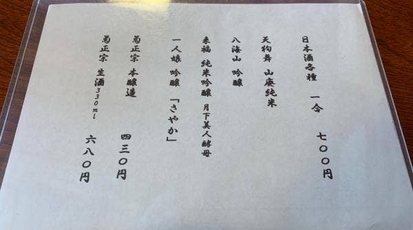 日本酒各種 一合 七〇〇円
天狗舞 山廃純米
八海山 吟醸
来福 純米吟醸 月下美人酵母
一人娘 吟醸 「さやか」
菊正宗 本醸造 四三〇円
菊正宗 生酒330ml 六八〇円